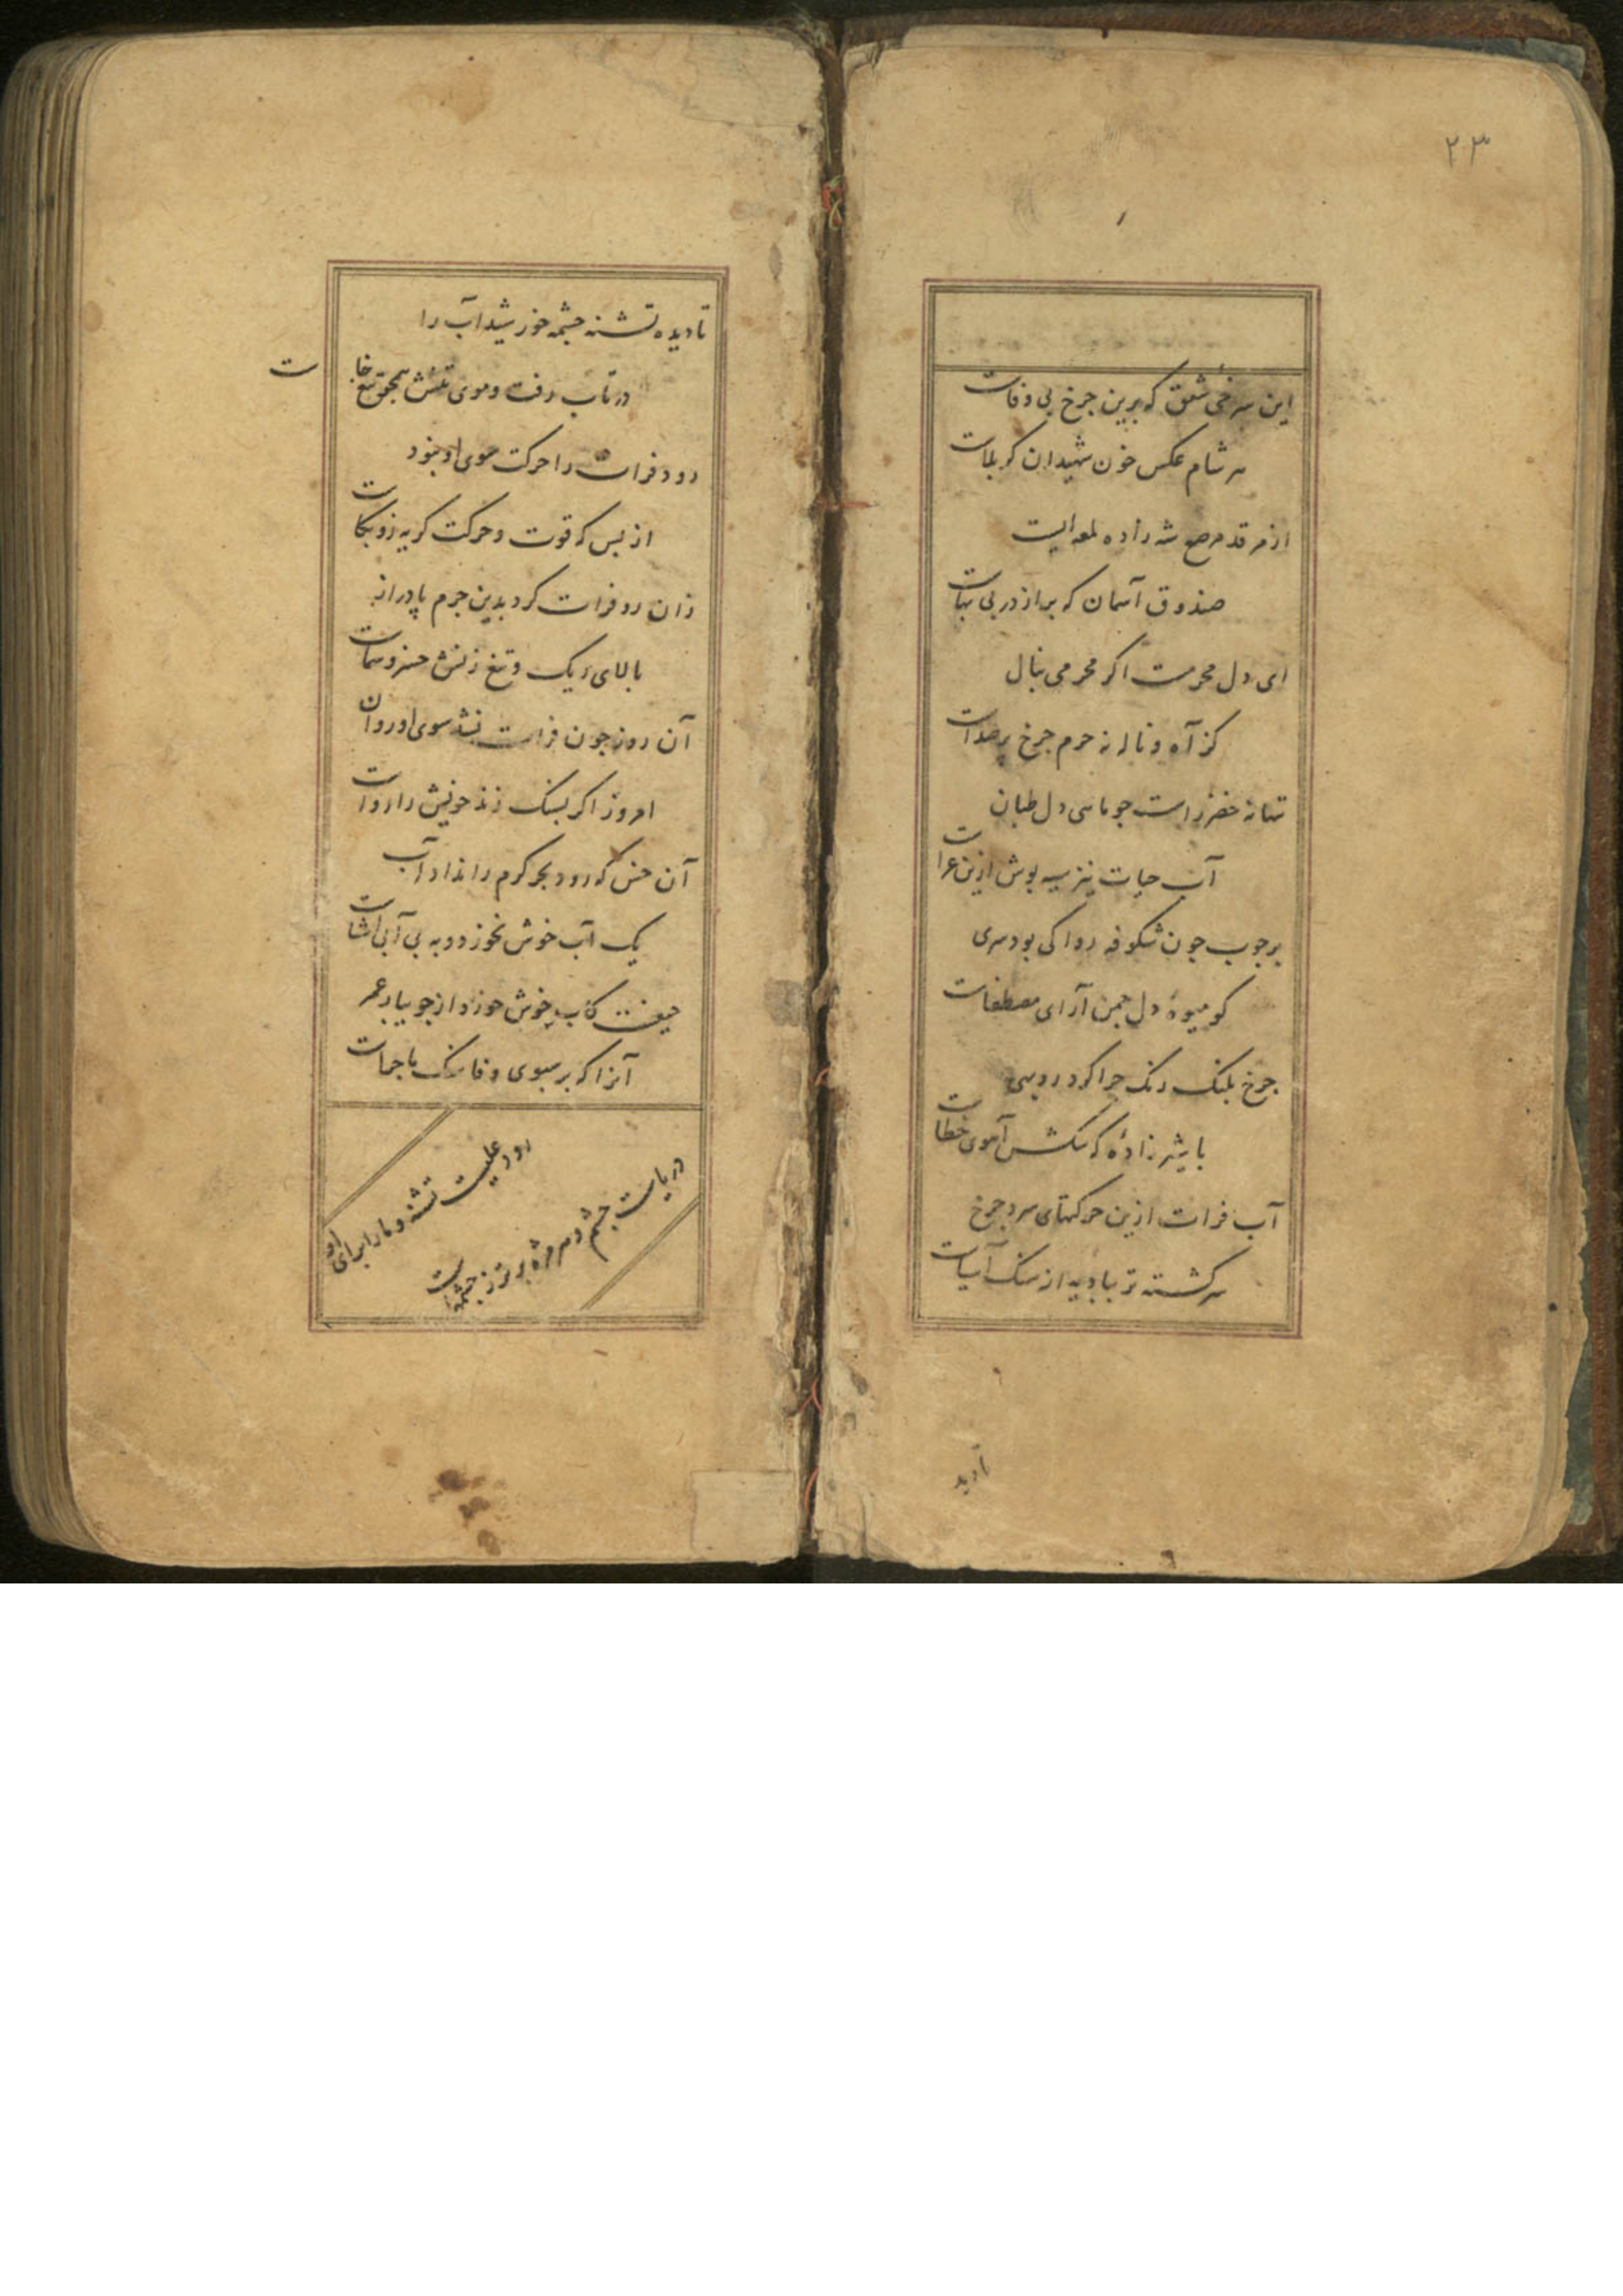 ۲۳
این سرخی شفق که برین چرخ بی وفاست
هر شام عکس خون شهیدان کربلاست
از مرقد مرصع شه زاده لمعه ایست
صندوق آسمان که پر از در بی بهاست
ای دل محرمست اگر محرمی بنال
کز آه و ناله نه حرم چرخ پر صداست
تنها نه خضر راست چو ماهی دل طپان
آب حیات نیز سیه پوش ازین عزاست
بر چوب چون شکوفه روا کی بود سری
کو میوهٔ دل چمن آرای مصطفاست
چرخ پلنگ رنگ چرا کرد روبهی
با شیر زادهٔ که سکش آهوی خطاست
آب فرات ازین حرکتهای سرد چرخ
سرکشته تر ببادیه از سنک آسیاست
تا دید
تا دیده تشنه چشمه خورشید آب را
در تاب رفت و موی تنش همچو تیغ خاست
رود فرات را حرکت سوی او نبود
از بس که قوت و حرکت کریه زو بکاست
زان رو فرات کرد بدین جرم پا دراز
بالای ریک و تیغ زنش خسرو سماست
آن روز چون فرات نشد سوی او روان
امروز اگر بسنک زند خویش را رواست
آن خس که رود بحر کرم را نداد آب
یک آب خوش نخورد و به بی آبی آشناست
حیفست کاب خوش خورد از جویبار عمر
آنرا که بر سبوی وفا سنک با جفاست
رود علیست تشنه و ما را برای او
دریاست چشم و هر مژه پر تر ز چشمهاست